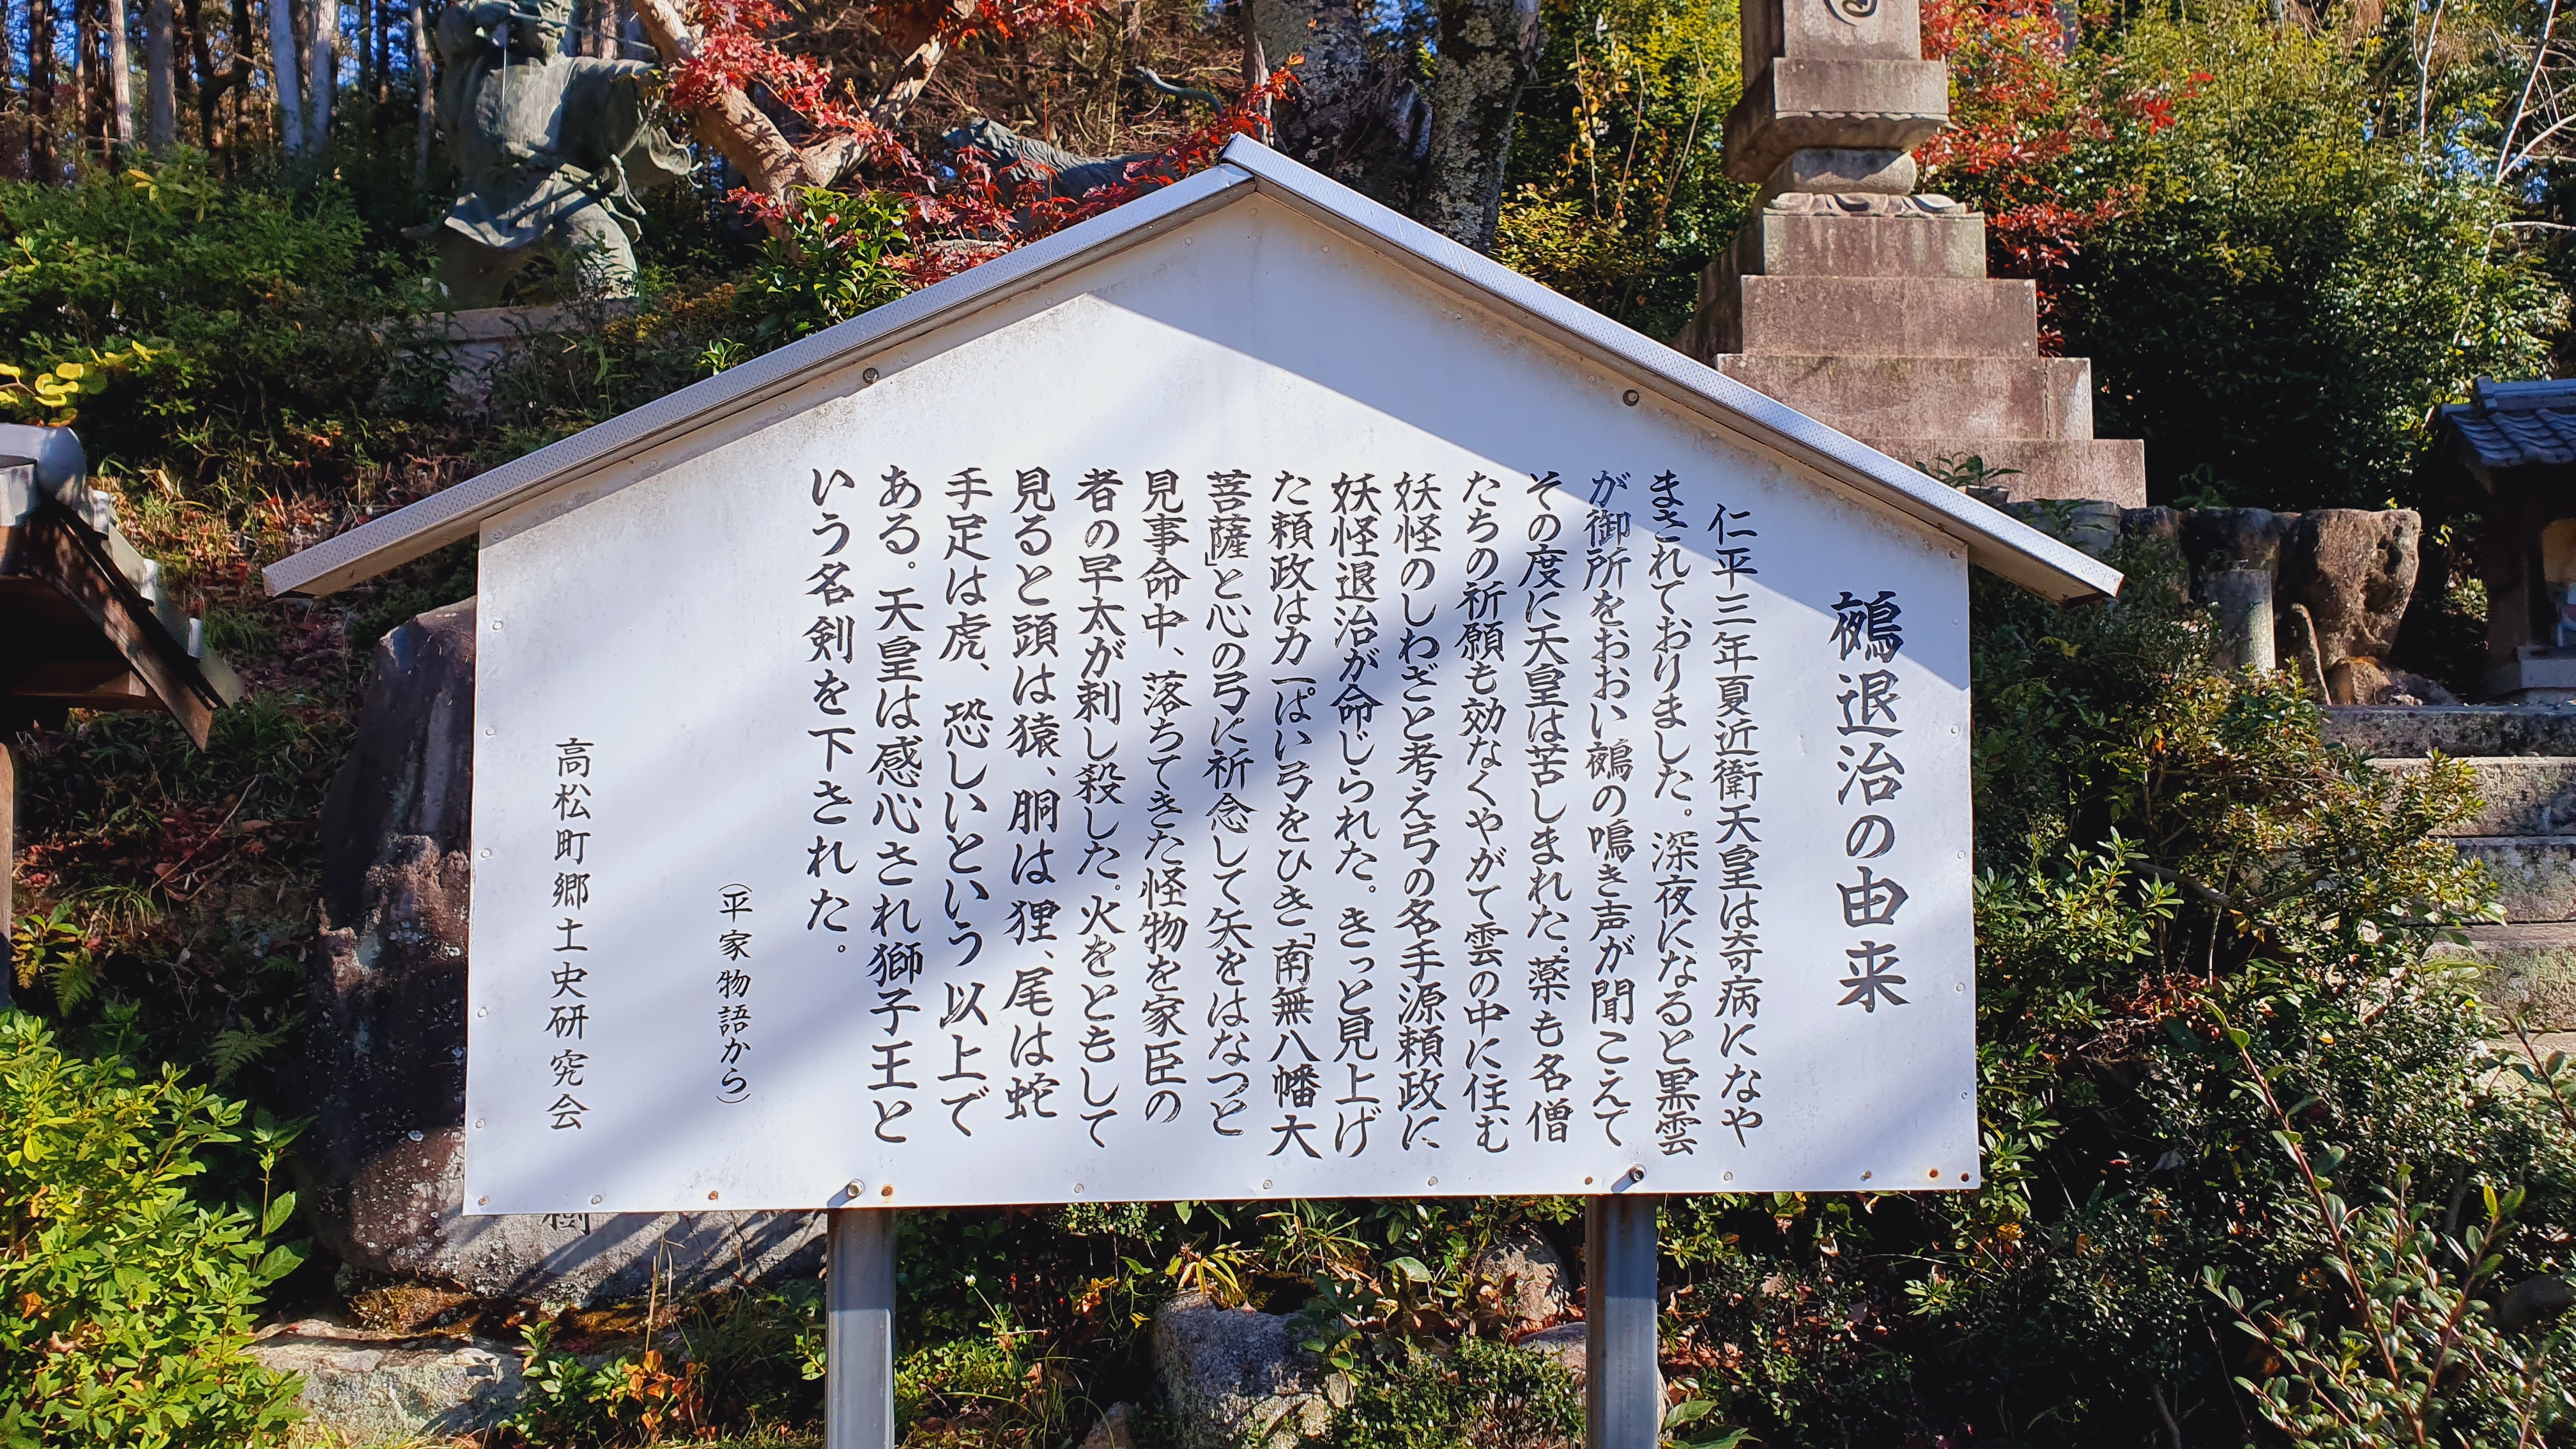 鵺退治の由来
仁平三年夏近衛天皇は奇病になや
まされておりました。深夜になると黒雲
が御所をおおい鵺の鳴き声が聞こえて
その度に天皇は苦しまれた。薬も名僧
たちの祈願も効なくやがて雲の中に住む
妖怪のしわざと考え弓の名手源頼政に
妖怪退治が命じられた。きっと見上げ
た頼政は力一ぱい弓をひき「南無八幡大
菩薩」と心の弓に祈念して矢をはなつと
見事命中、落ちてきた怪物を家臣の
者の早太が刺し殺した。火をともして
見ると頭は猿、胴は狸、尾は蛇
手足は虎、恐しいという以上で
ある。天皇は感心され獅子王と
いう名剣を下された。
（平家物語から）
高松町郷土史研究会